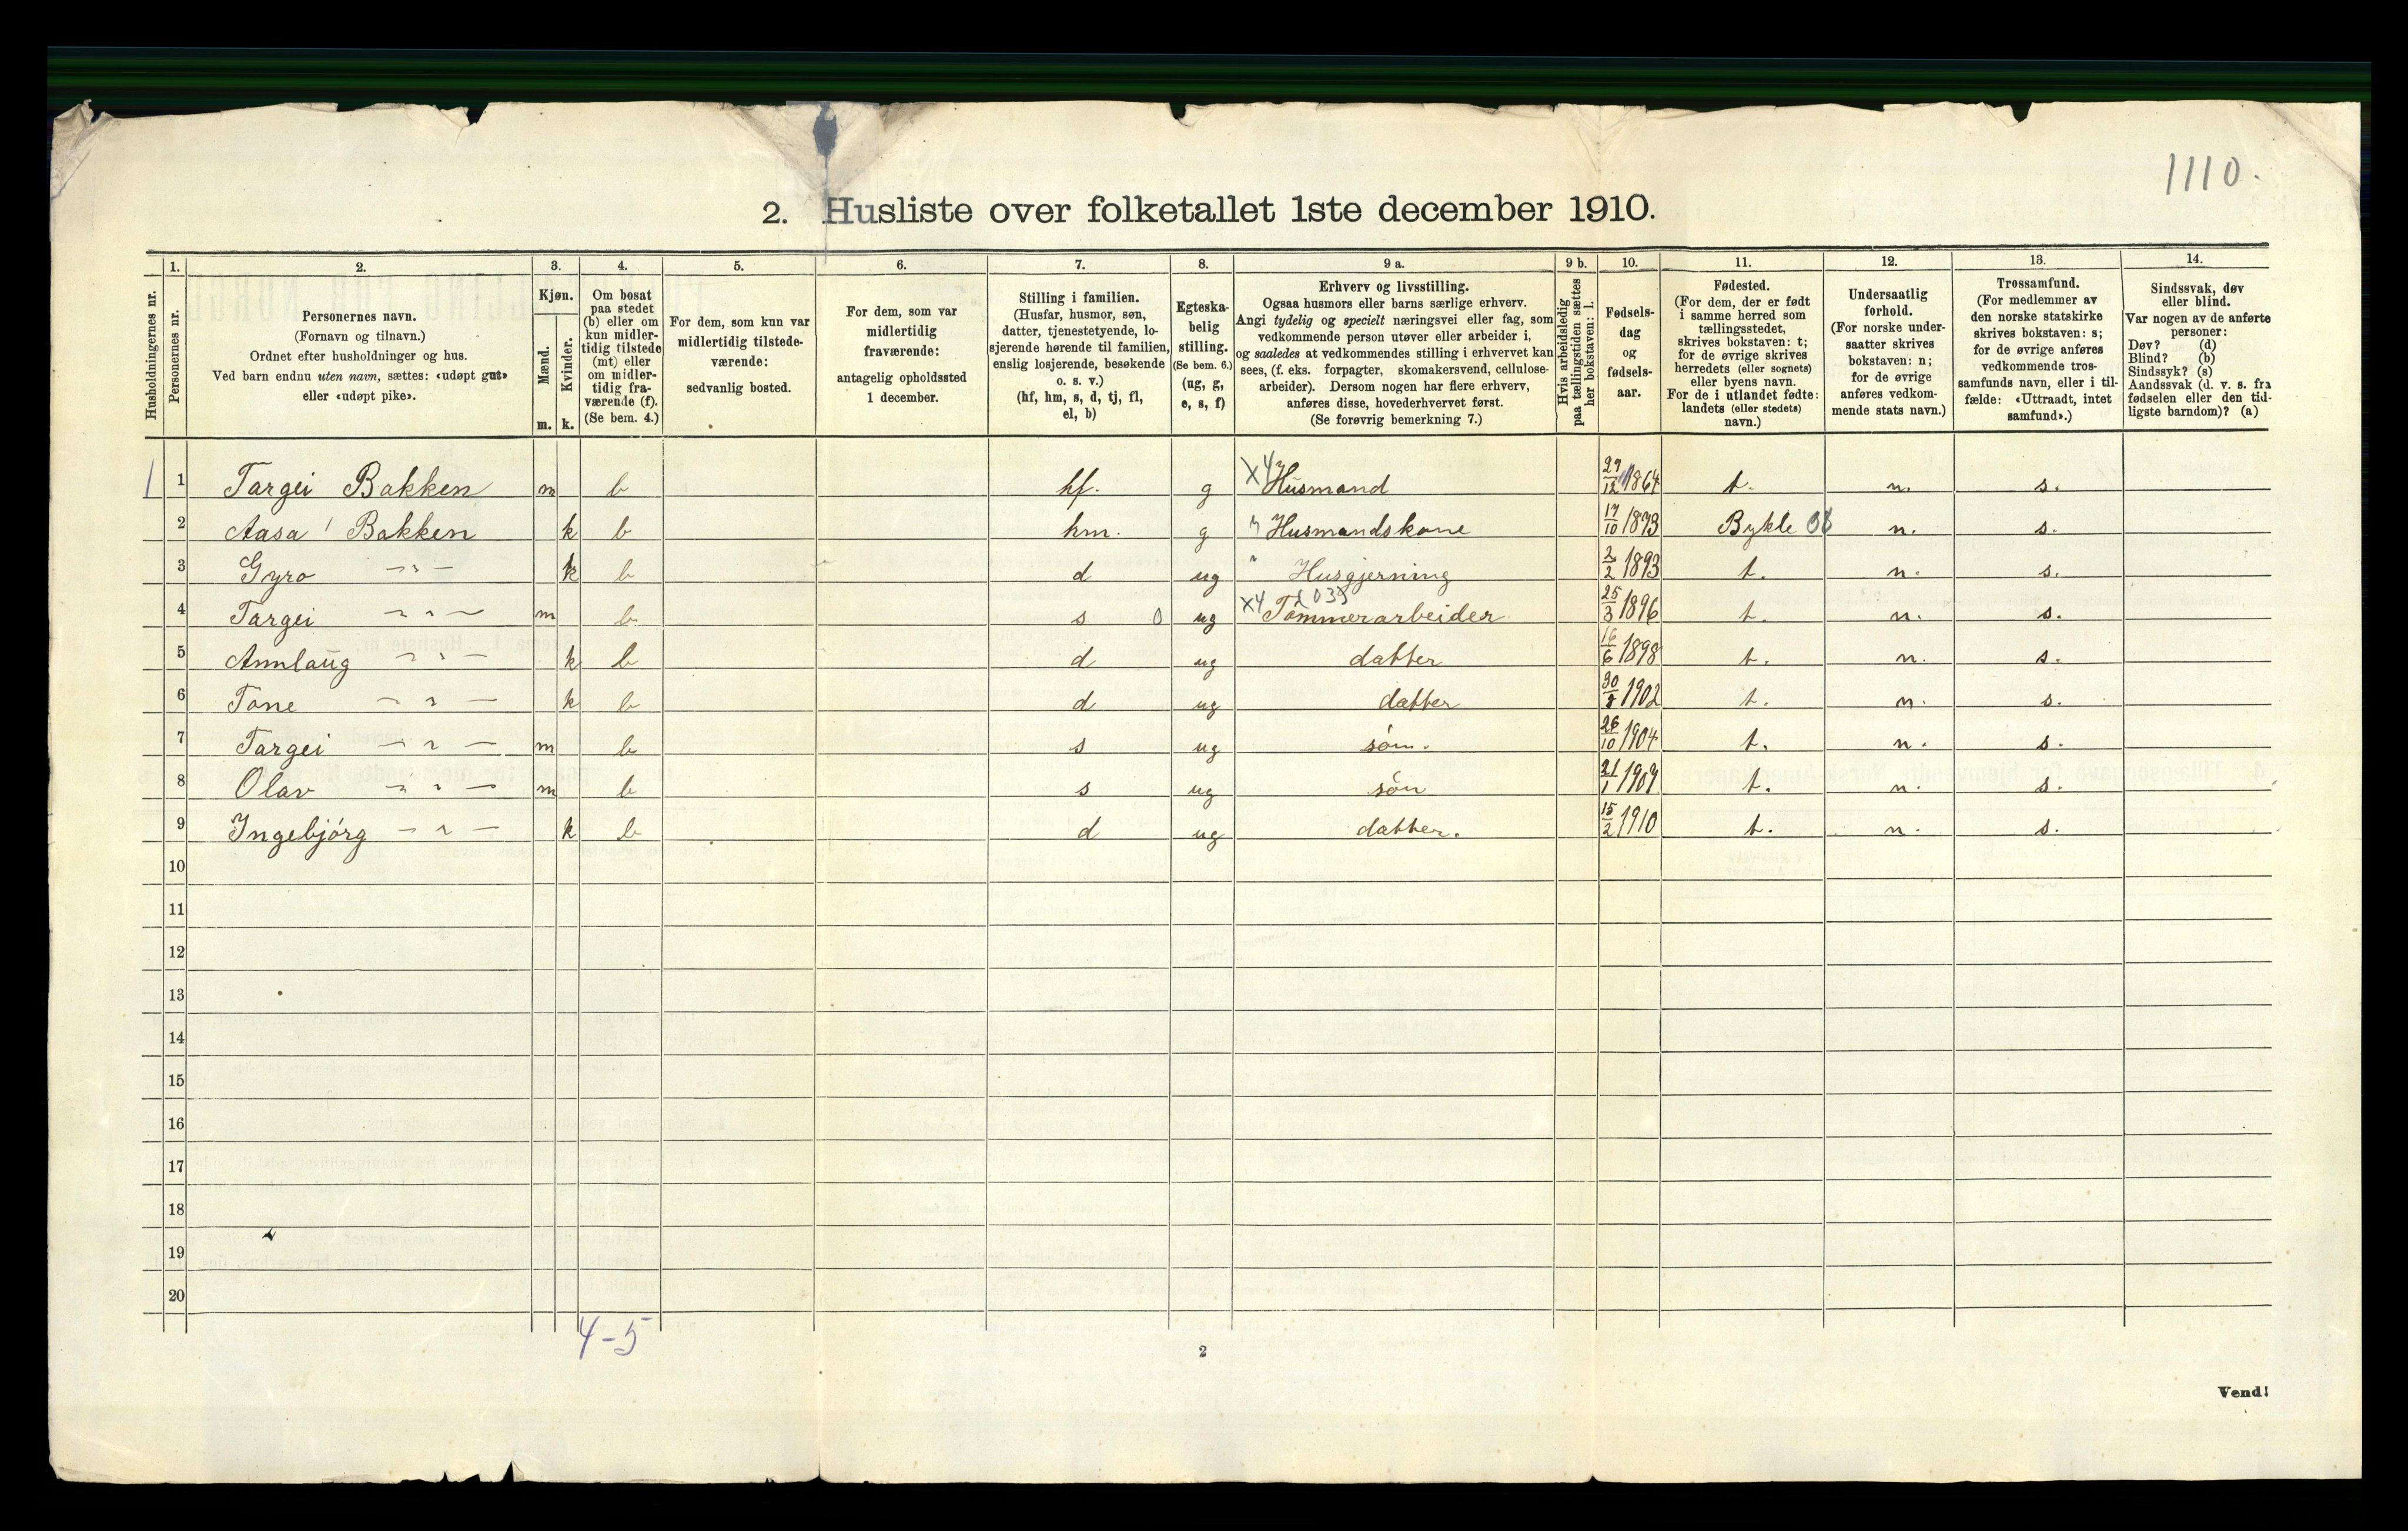 1110.
2. Husliste over folketallet 1ste december 1910.
Husholdningernes nr.
1.
Personernes nr.
2.
Personernes navn.
(Fornavn og tilnavn.)
Ordnet efter husholdninger og hus.
Ved barn endnu uten navn, sættes: «udøpt gut»
eller «udøpt pike».
3.
Kjøn.
Mænd.
Kvinder.
m. k.
4.
Om bosat
paa stedet
(b) eller om
kun midler-
tidig tilstede
(mt) eller
om midler-
tidig fra-
værende (f).
(Se bem. 4.)
5.
For dem, som kun var
midlertidig tilstede-
værende:
sedvanlig bosted.
6.
For dem, som var
midlertidig
fraværende:
antagelig opholdssted
1 december.
7.
Stilling i familien.
(Husfar, husmor, søn,
datter, tjenestetyende, lo-
sjerende hørende til familien,
enslig losjerende, besøkende
o. s. v.)
(hf, hm, s, d, tj, fl,
el, b)
8.
Egteska-
belig
stilling.
(Se bem. 6.)
(ug, g,
e, s, f)
9 a.
Erhverv og livsstilling.
Ogsaa husmors eller barns særlige erhverv.
Angi tydelig og specielt næringsvei eller fag, som
vedkommende person utøver eller arbeider i,
og saaledes at vedkommendes stilling i erhvervet kan
sees, (f. eks. forpagter, skomakersvend, cellulose-
arbeider). Dersom nogen har flere erhverv,
anføres disse, hovederhvervet først.
(Se forøvrig bemerkning 7.)
9 b.
Hvis arbeidsledig
paa tællingstiden sættes
her bokstaven: l.
10.
Fødsels-
dag
og
fødsels-
aar.
11.
Fødested.
(For dem, der er født
i samme herred som
tællingsstedet,
skrives bokstaven: t;
for de øvrige skrives
herredets (eller sognets)
eller byens navn.
For de i utlandet fødte:
landets (eller stedets)
navn.)
12.
Undersaatlig
forhold.
(For norske under-
saatter skrives
bokstaven: n;
for de øvrige
anføres vedkom-
mende stats navn.)
13.
Trossamfund.
(For medlemmer av
den norske statskirke
skrives bokstaven: s;
for de øvrige anføres
vedkommende tros-
samfunds navn, eller i til-
fælde: «Uttraadt, intet
samfund».)
14.
Sindssvak, døv
eller blind.
Var nogen av de anførte
personer:
Døv? (d)
Blind? (b)
Sindssyk? (s)
Aandssvak (d. v. s. fra
fødselen eller den tid-
ligste barndom)? (a)
1 1 Targei Bakken m b hf. g X4 Husmand 29/12 1864 t. n. s.
2 Aasa Bakken k b hm. g " Husmandskone 10 Bykle 08 n. s.
3 Gyro — " — k b d ug " Husgjerning 2/2 1893 t. n. s.
4 Targei — " — m b s 0 ug X4 Tømmerarbeider 25/3 1896 t. n. s.
5 Annlaug — " — k b d ug datter 16/6 1898 t. n. s.
6 Tone — " — k b d ug datter 1902 t. n. s.
7 Targei — " — m b s ug søn. 26/10 1904 t. n. s.
8 Olav — " — m b s ug søn 21/1 t. n. s.
9 Ingebjørg — " — k b d ug datter. 15/2 1910 t. n. s.
10
11
12
13
14
15
16
17
18
19
20
4-5
2
Vend!